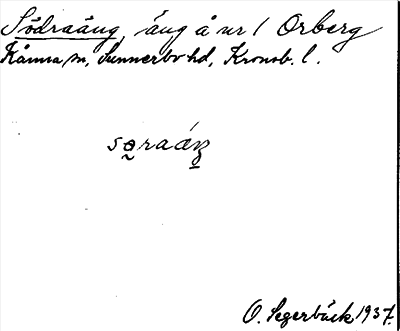 Södraäng, äng å nr 1 Orberg
Kånna sn, Sunnerbo hd, Kronob. l.
sǫraáŋ
O. Segerbäck 1937.